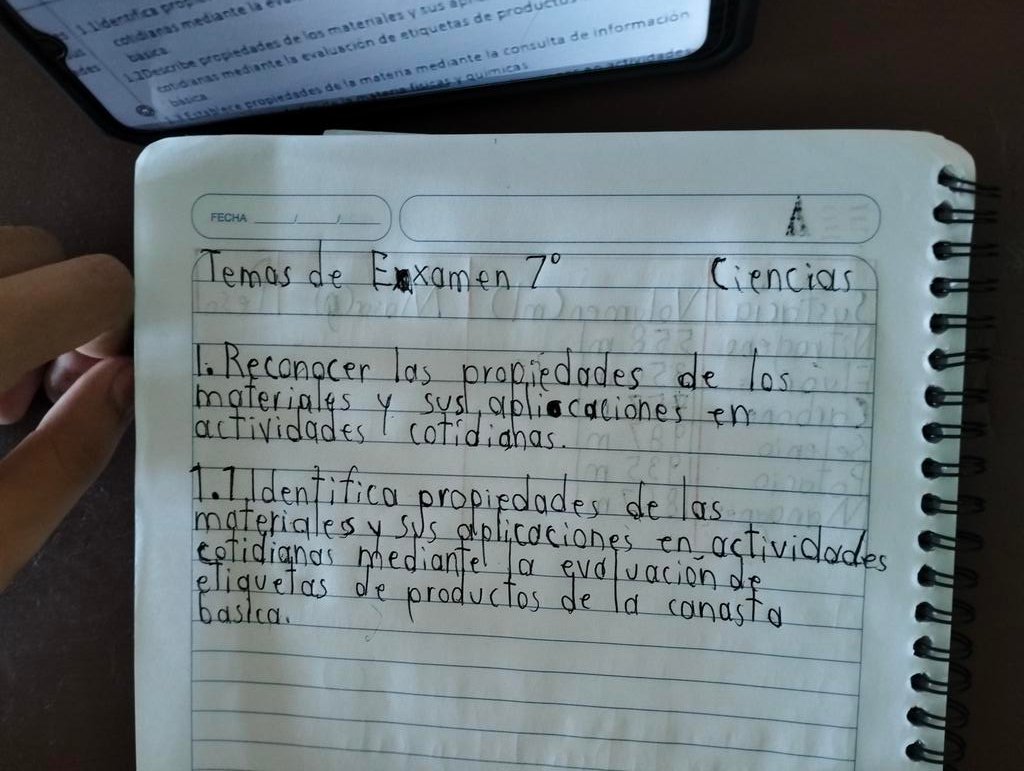 1.1 Identifica
cotidianas mediante la
básica
1.2 Describe propiedades de los materiales y sus
cotidianas mediante la evaluación de etiquetas de
básica
1.3 Establece propiedades de la materia mediante la consulta de información
FECHA / /
A
Temas de Examen 7° Ciencias
1. Reconocer las propiedades de los
materiales y sus aplicaciones en
actividades cotidianas.
1.1 Identifica propiedades de las
materiales y sus aplicaciones en actividades
cotidianas mediante la evaluación de
etiquetas de productos de la canasta
basica.